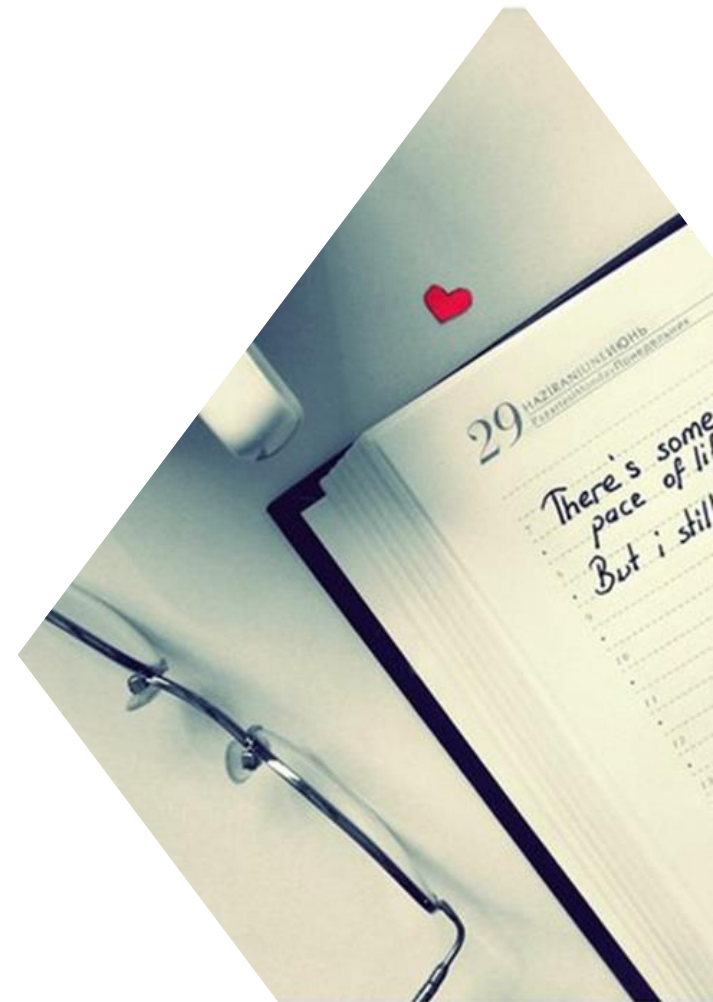 29
HAZİRAN|JUNE|ИЮНЬ
Pazartesi|Monday|Понедельник
There's some
pace of
But i still
9
10
11
12